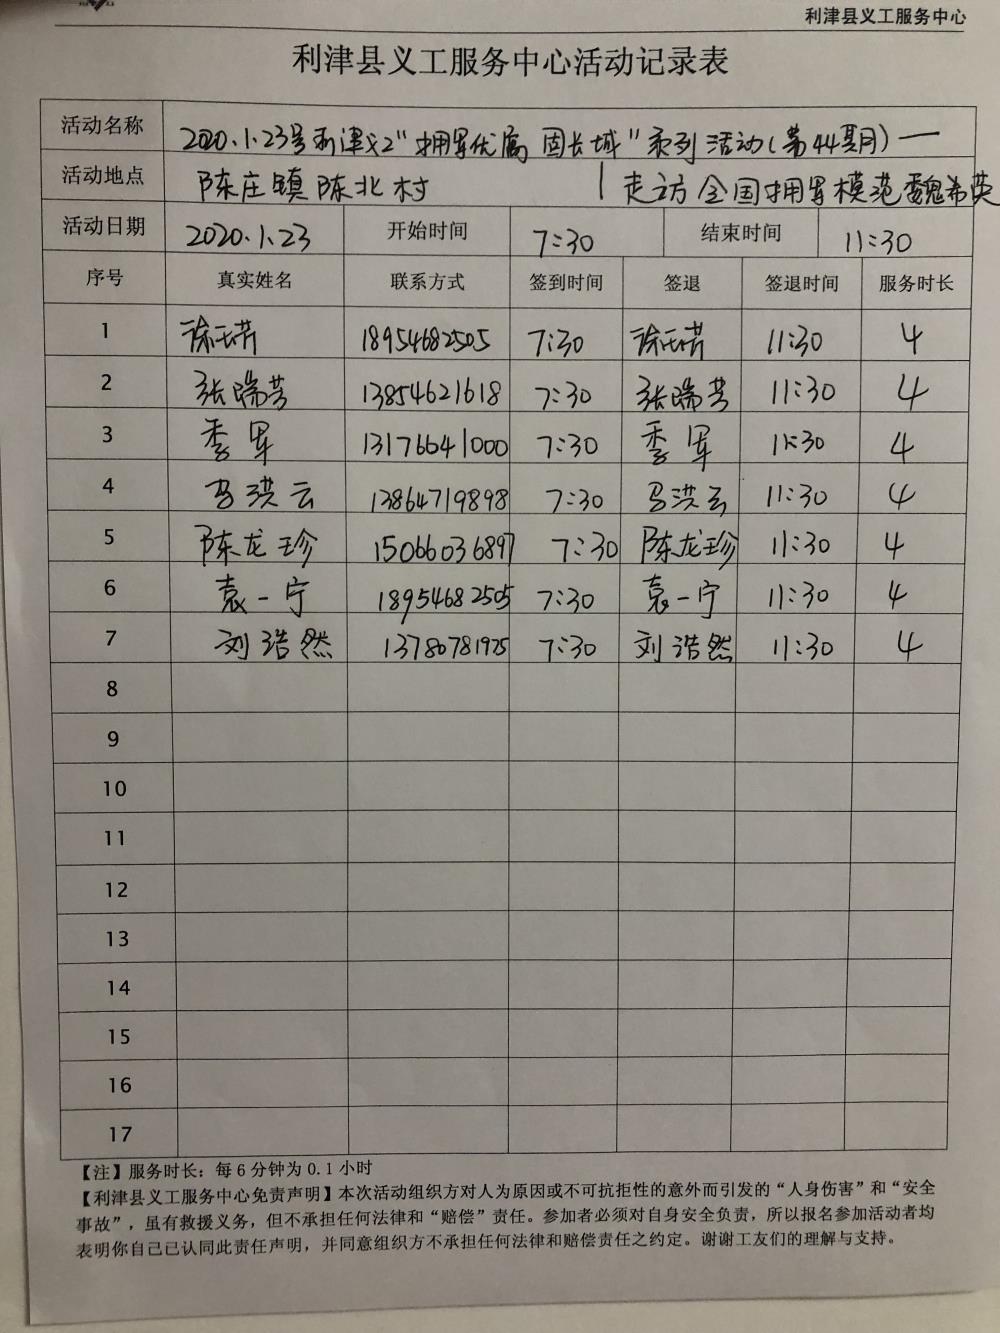 利津县义工服务中心
利津县义工服务中心活动记录表
活动名称 2020.1.23号利津义工"拥军优属 固长城"系列活动(第44期)—
活动地点 陈庄镇陈北村 走访全国拥军模范魏希英
活动日期 2020.1.23 开始时间 7:30 结束时间 11:30
序号 真实姓名 联系方式 签到时间 签退 签退时间 服务时长
1 18954682505 7:30 11:30 4
2 张瑞芳 13854621618 7:30 张瑞芳 11:30 4
3 季军 13176641000 7:30 季军 11:30 4
4 马洪云 13864719898 7:30 马洪云 11:30 4
5 陈龙珍 15066036897 7:30 陈龙珍 11:30 4
6 袁一宁 18954682505 7:30 袁一宁 11:30 4
7 刘浩然 13780781975 7:30 刘浩然 11:30 4
8
9
10
11
12
13
14
15
16
17
【注】服务时长：每6分钟为0.1小时
【利津县义工服务中心免责声明】本次活动组织方对人为原因或不可抗拒性的意外而引发的“人身伤害”和“安全
事故”，虽有救援义务，但不承担任何法律和“赔偿”责任。参加者必须对自身安全负责，所以报名参加活动者均
表明你自己已认同此责任声明，并同意组织方不承担任何法律和赔偿责任之约定。谢谢工友们的理解与支持。